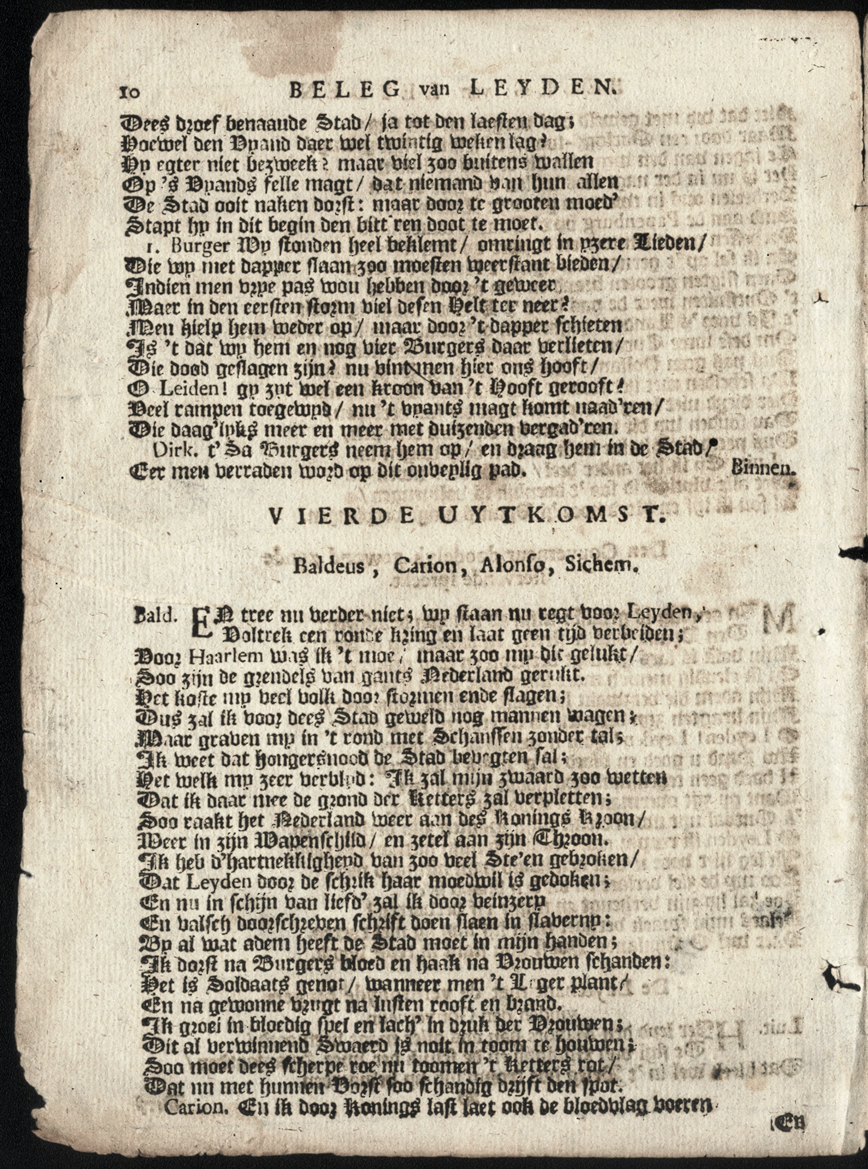 10 BELEG van LEYDEN.
Dees droef benaaude Stad/ ja tot den laesten dag;
Hoewel den Vyand daer wel twintig weken lag?
Hy egter niet bezweek? maar viel zoo buitens wallen
Op 's Vyands felle magt/ dat niemand van hun allen
De Stad ooit naken dorst: maar door te grooten moed'
Stapt hy in dit begin den bitt'ren doot te moet.
1. Burger Wy stonden heel beklemt/ omringt in yzere Lieden/
Die wy met dapper slaan zoo moesten weerstant bieden/
Indien men vrye pas wou hebben door 't geweer
Maer in den eersten storm viel desen Helt ter neer?
Men hielp hem weder op/ maar door 't dapper schieten
Is 't dat wy hem en nog vier Burgers daar verlieten/
Die dood geslagen zijn? nu hier ons hooft/
O Leiden! gy zyt wel een kroon van 't Hooft gerooft?
Veel rampen toegewyd/ nu 't vyants magt komt naad'ren/
Die daag'lyks meer en meer met duizenden vergad'ren.
Dirk. t' Sa Burgers neem hem op/ en draag hem in de Stad/
Eer men verraden word op dit onveylig pad. Binnen.
VIERDE UYTKOMST.
Baldeus, Carion, Alonso, Sichem.
Bald. EN tree nu verder niet; wy staan nu regt voor Leyden,
Voltrek een ronde kring en laat geen tijd verbeiden;
Voor Haarlem was ik 't moe/ maar zoo my die gelukt/
Soo zijn de grendels van gants Nederland gerukt.
Het koste my veel volk door stormen ende slagen;
Dus zal ik voor dees Stad geweld nog mannen wagen;
Maar graven my in 't rond met Schanssen zonder tal;
Ik weet dat hongersnood de Stad bevegten sal;
Het welk my zeer verblyd: Ik zal mijn zwaard zoo wetten
Dat ik daar mee de grond der Ketters zal verpletten;
Soo raakt het Nederland weer aan des Konings Kroon/
Weer in zijn Wapenschild/ en zetel aan zijn Throon.
Ik heb d'hartnekkigheyd van zoo veel Ste'en gebroken/
Dat Leyden door de schrik haar moedwil is gedoken;
En nu in schijn van liefd' zal ik door veinzery
En valsch doorschreven schrift doen slaen in slaverny:
By al wat adem heeft de Stad moet in mijn handen;
Ik dorst na Burgers bloed en haak na Vrouwen schanden:
Het is Soldaats genot/ wanneer men 't Leger plant/
En na gewonne vrugt na lusten rooft en brand.
Ik groei in bloedig spel en lach' in druk der Vrouwen;
Dit al verwinnend Swaerd is noit in toom te houwen;
Soo moet dees scherpe roe nu toomen 't Ketters rot/
Dat nu met hunnen Vorst soo schandig drijft den spot.
Carion. En ik door Konings last laet ook de bloedvlag voeren
En